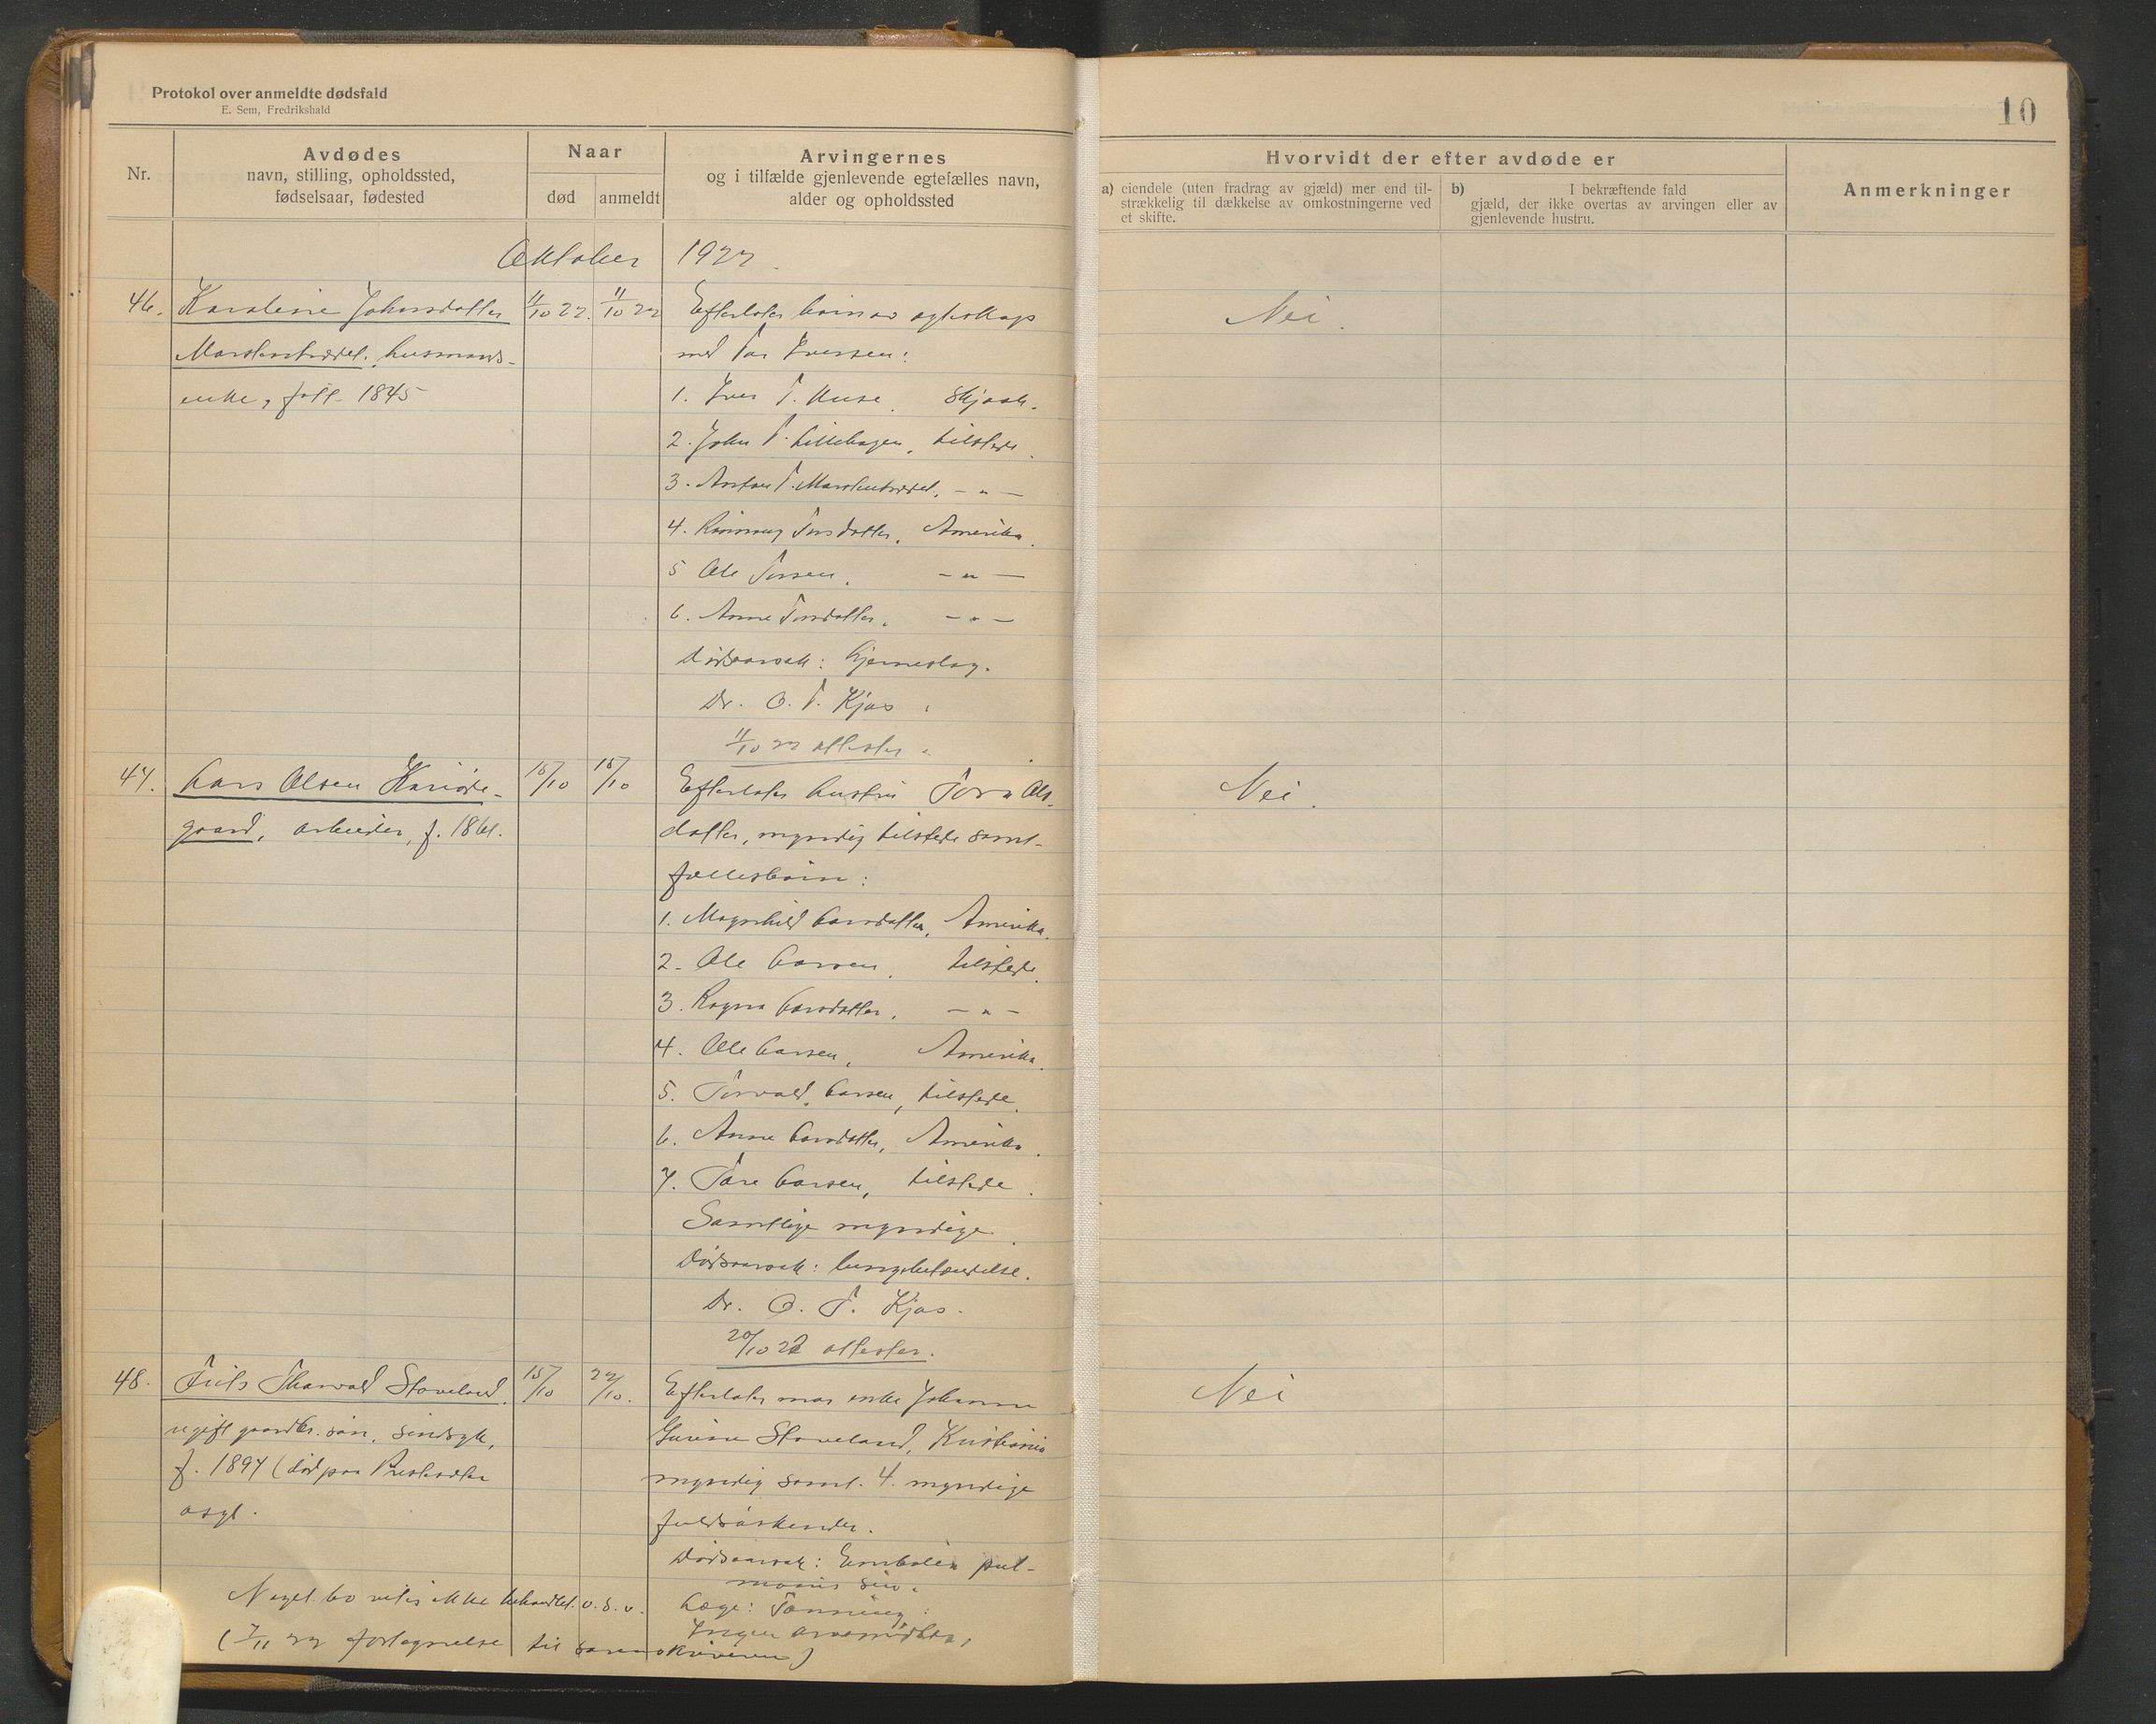 Protokol over anmeldte dødsfald
E. Sem, Fredrikshald
10
Nr.
Avdødes
navn, stilling, opholdssted,
fødselsaar, fødested
Naar
død
anmeldt
Arvingernes
og i tilfælde gjenlevende egtefælles navn,
alder og opholdssted
Hvorvidt der efter avdøde er
a) eiendele (uten fradrag av gjæld) mer end til-
strækkelig til dækkelse av omkostningerne ved
et skifte.
b) I bekræftende fald
gjæld, der ikke overtas av arvingen eller av
gjenlevende hustru.
Anmerkninger
Oktober 1922.
46. Karoline Johnsdatter
Marstentrædet, husmands-
enke, født 1845
11/10 22. 11/10 22
Efterlater barn av egteskap
med Tor Iversen:
1. Iver T. Kuse, Skjaak.
2. John T. Lillehagen, tilstede.
3. Anton T. Marstentrædet, - " -
4. Rønnaug Torsdatter, Amerika.
5 Ole Torsen, - " -
6. Anne Torsdatter, - " -
Dødsaarsak: hjerneslag.
Dr. O. T. Kjos.
11/10 22 attester.
Nei.
47. Lars Olsen
gaard, arbeider, f. 1861.
15/10 15/10
Efterlater hustru Tora Ols-
datter, myndig tilstede samt
fællesbarn:
1. Magnhild Larsdatter, Amerika.
2. Ole Larsen, tilstede.
3. Ragna Larsdatter, - " -
4. Ole Larsen, Amerika.
5. Torvald Larsen, tilstede.
6. Anne Larsdatter, Amerika.
7. Tore Larsen, tilstede.
Samtlige myndige.
Dødsaarsak: lungebetændelse.
Dr. O. T. Kjos.
20/10 22 attester.
Nei.
48. Frits Tharald Staveland,
ugift gaardbr. søn, sindsyk,
f. 1897 (død paa Presteseter
asyl.
15/10 22/10.
Efterlater mor enke Johanne
Gurine Staveland, Kristiania
myndig samt 4 myndige
fuldsøskender.
Dødsaarsak: Embolia pul-
monis sin.
Læge: Tønning.
Ingen arvemidler.
Nei
N egl. bo vites ikke behandlet o. s. v.
(7/11 22 forlagnelse til sorenskriveren)